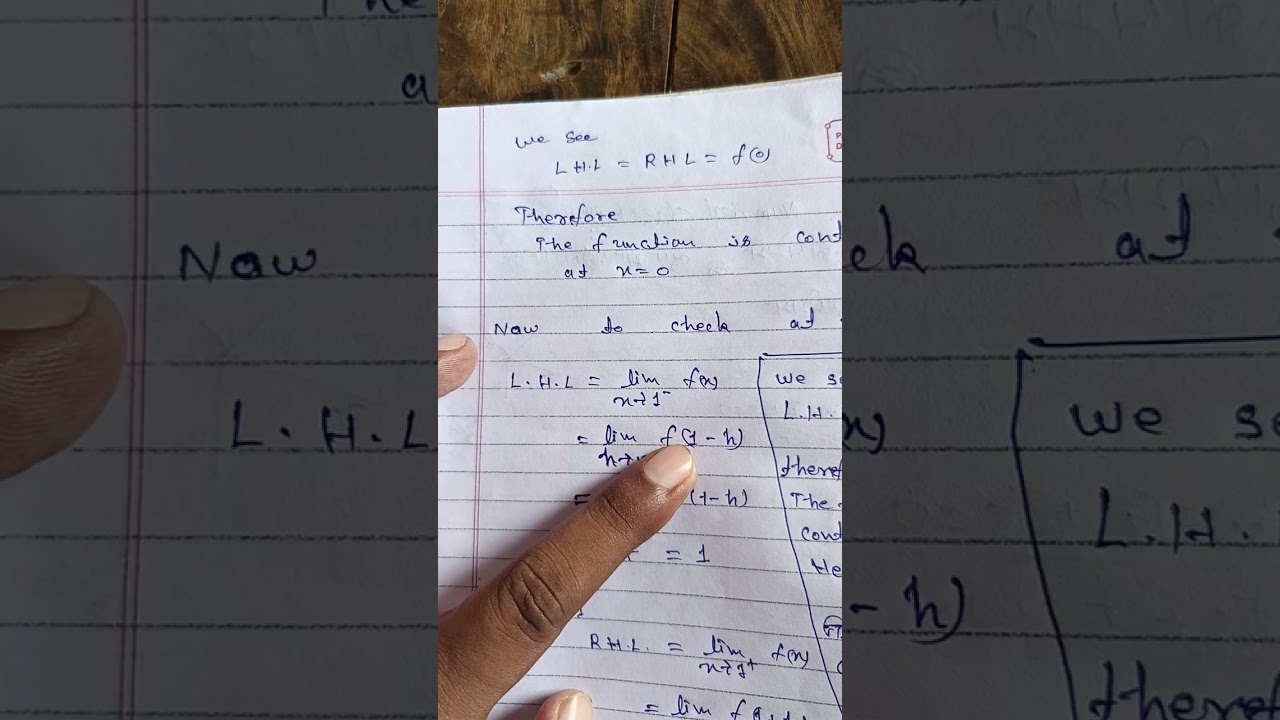 We see
L H.L = R H L = f(0)
Therefore
The function is cont
at x=0
Now to check at
L.H.L = lim f(x)
x→1⁻
= lim f(1-h)
=
(1-h)
= 1
R.H.L. = lim f(x)
x→1⁺
= lim f(1+h
We se
L.H.
theref
The
cont
He